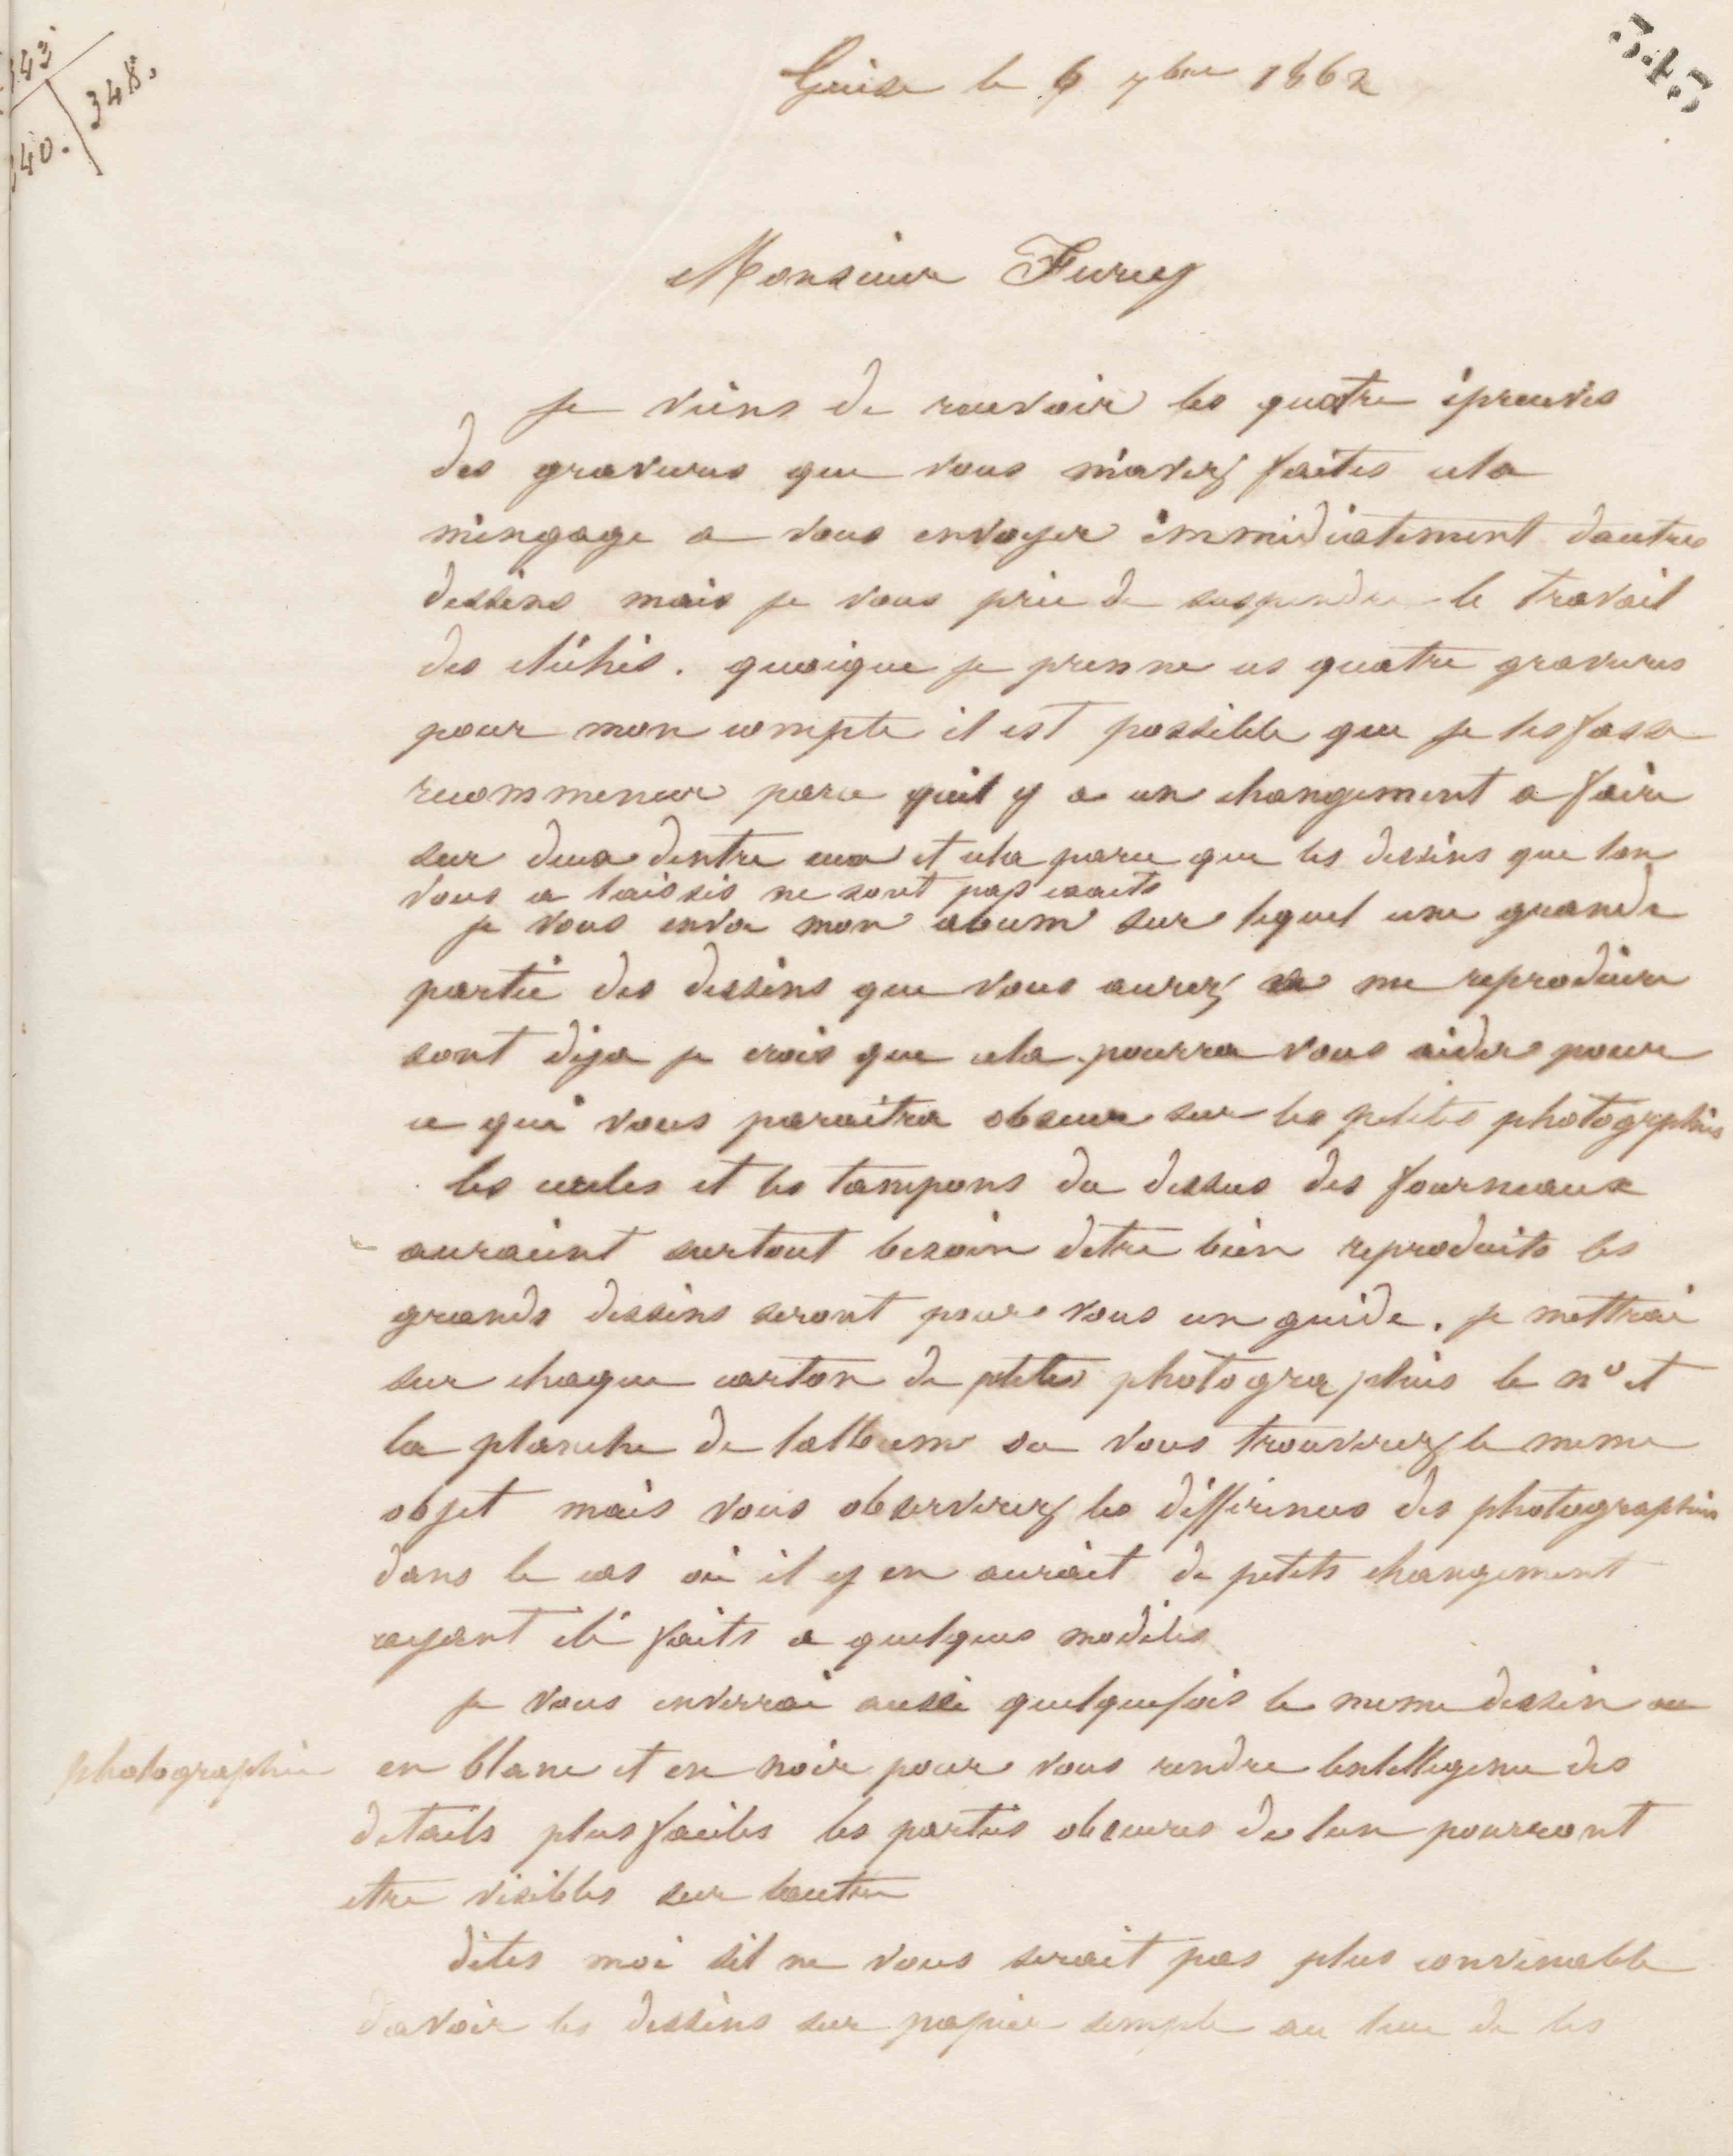 343
340.
348.
345
Guise le 6 7bre 1862
Monsieur Furey
je viens de recevoir les quatre épreuves
des gravures que vous m'avez faites cela
m'engage a vous envoyer immédiatement dautres
dessins mais je vous prie de suspendre le travail
des clichés. quoique je prenne ces quatre gravures
pour mon compte il est possible que je les fasse
recommencer parce quil y a un changement a faire
sur deux dentre eux et cela parce que les dessins que lon
vous a laissés ne sont pas exacts
je vous envoi mon abum sur lequel une grande
partie des dessins que vous aurez a me reproduire
sont deja je crois que cela pourra vous aider pour
ce qui vous paraitra obscur sur les petites photographies
les cercles et les tampons du dessus des fourneaux
auraient surtout besoin detre bien reproduits les
grands dessins seront pour vous un guide. je mettrai
sur chaque carton de petites photographies le no et
la planche de lalbum ou vous trouverez le meme
objet mais vous observerez les différences des photographies
dans le cas où il y en aurait de petits changement
ayant été faits a quelques modèles
je vous enverrai aussi quelquefois le meme dessin
photographie en blanc et en noir pour vous rendre lintelligence des
details plus faciles les parties obscures de lun pourront
etre visibles sur lautre
dites moi sil ne vous serait pas plus convenable
davoir les dessins sur papier simple au lieu de les